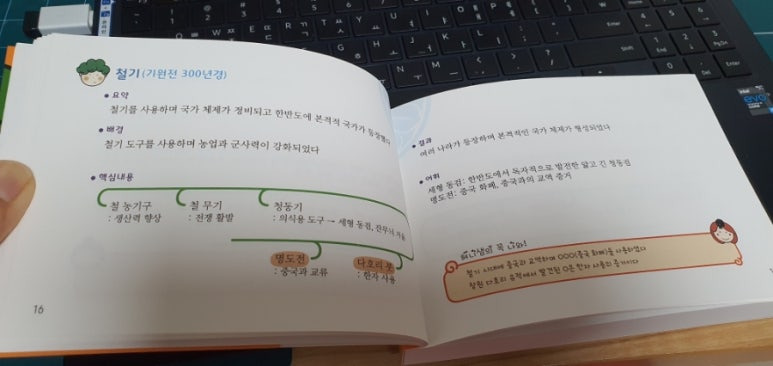 철기 (기원전 300년경)
• 요약
철기를 사용하며 국가 체제가 정비되고 한반도에 본격적 국가가 등장했다
• 배경
철기 도구를 사용하며 농업과 군사력이 강화되었다
• 핵심내용
철 농기구
: 생산력 향상
철 무기
: 전쟁 활발
청동기
: 의식용 도구 → 세형 동검, 잔무늬 거울
명도전
: 중국과 교류
다호리 붓
: 한자 사용
16
• 결과
여러 나라가 등장하며 본격적인 국가 체제가 형성되었다
• 어휘
세형 동검: 한반도에서 독자적으로 발전한 얇고 긴 청동검
명도전: 중국 화폐, 중국과의 교역 증거
꼭 나와!
철기 시대에 중국과 교역하며 OOO(중국 화폐)을 사용하였다
창원 다호리 유적에서 발견된 O은 한자 사용의 증거이다
Enter
Shift
Ctrl
End
PgDn
Del
intel
evo